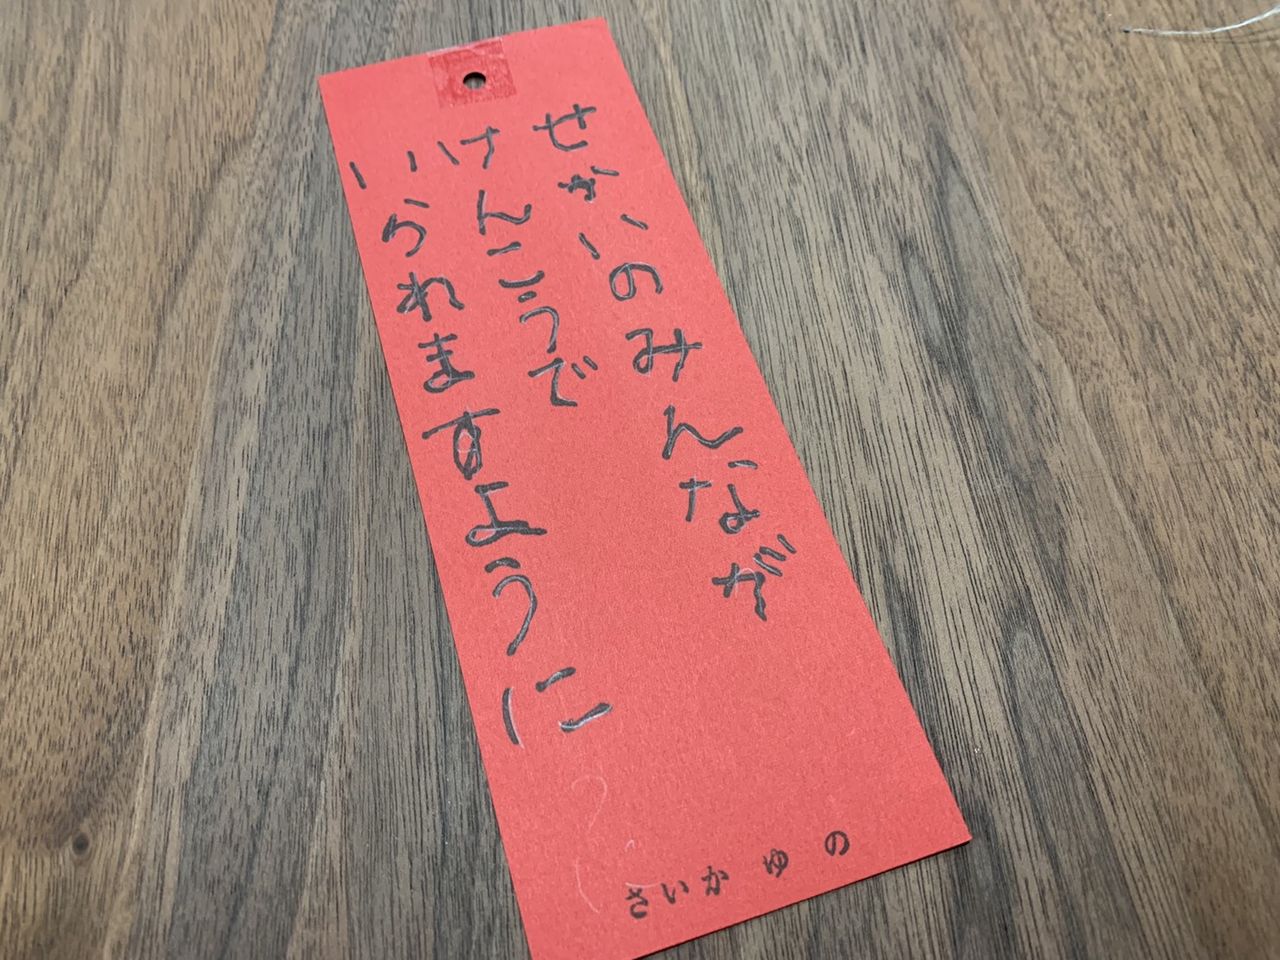 せかいのみんなが
けんこうで
いられますように
さいか ゆの